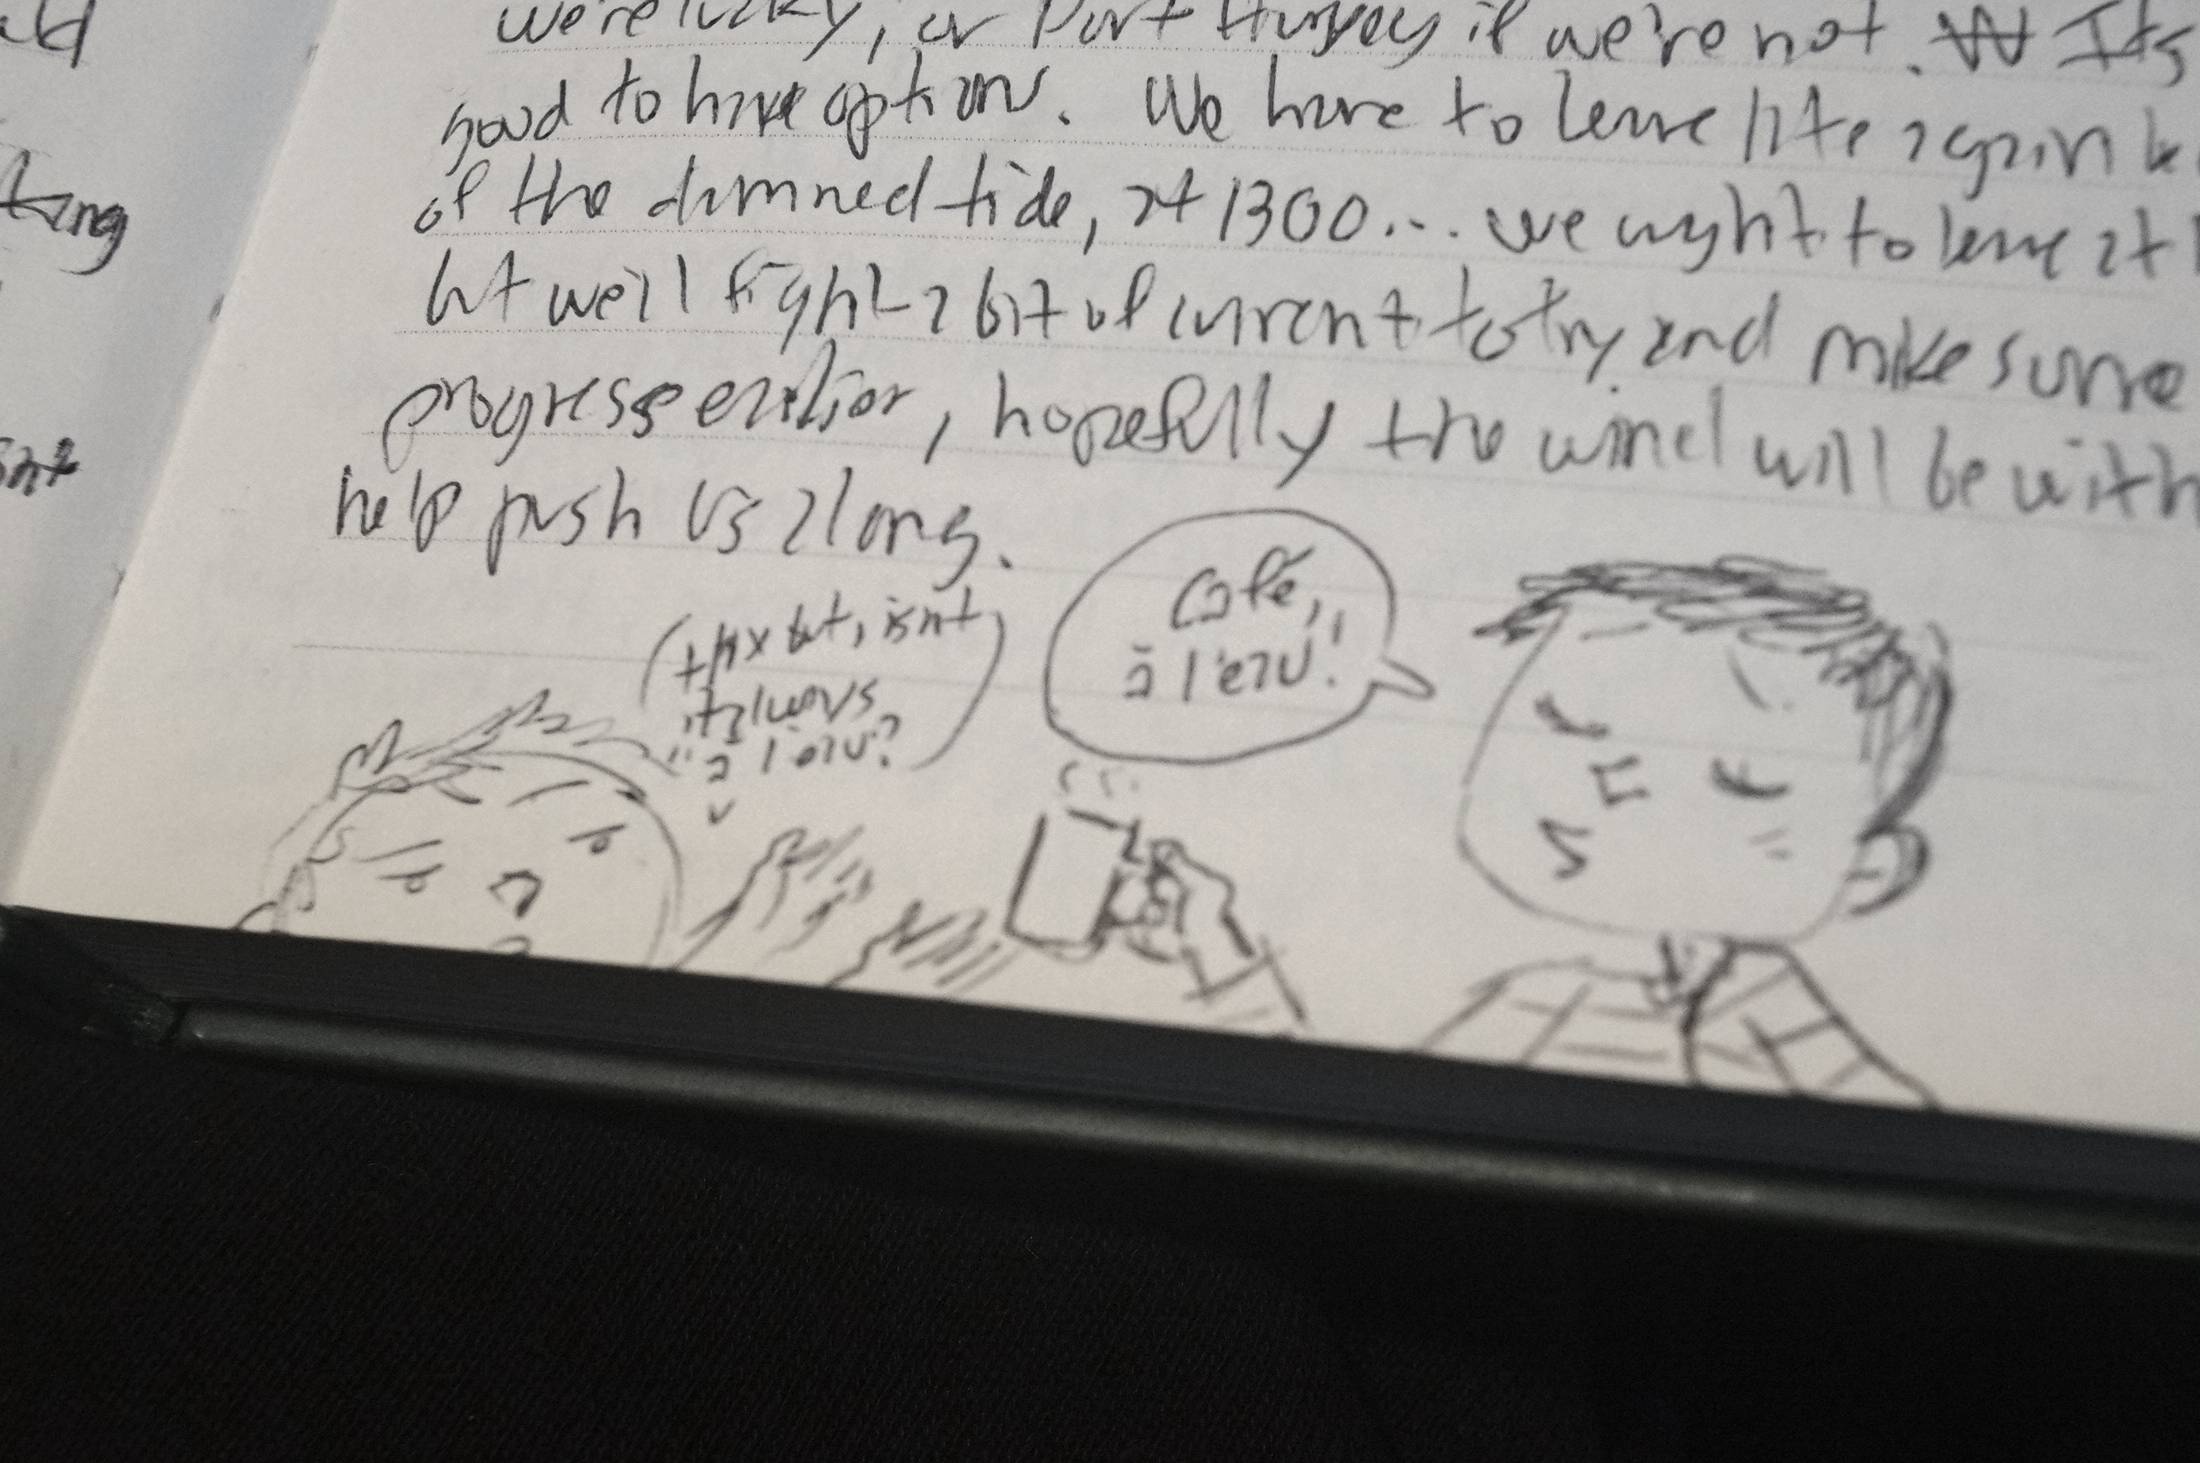 we're lucky, or Port Hardy if we're not. Its
good to have option. We have to leave late again
of the damned tide, at 1300... we ought to leave at
but we'll fight a bit of current to try and make sure
progress earlier, hopefully the wind will be with
help push us along.
Café,
à l'eau!
thx but, isnt
it always
"à l'eau"?